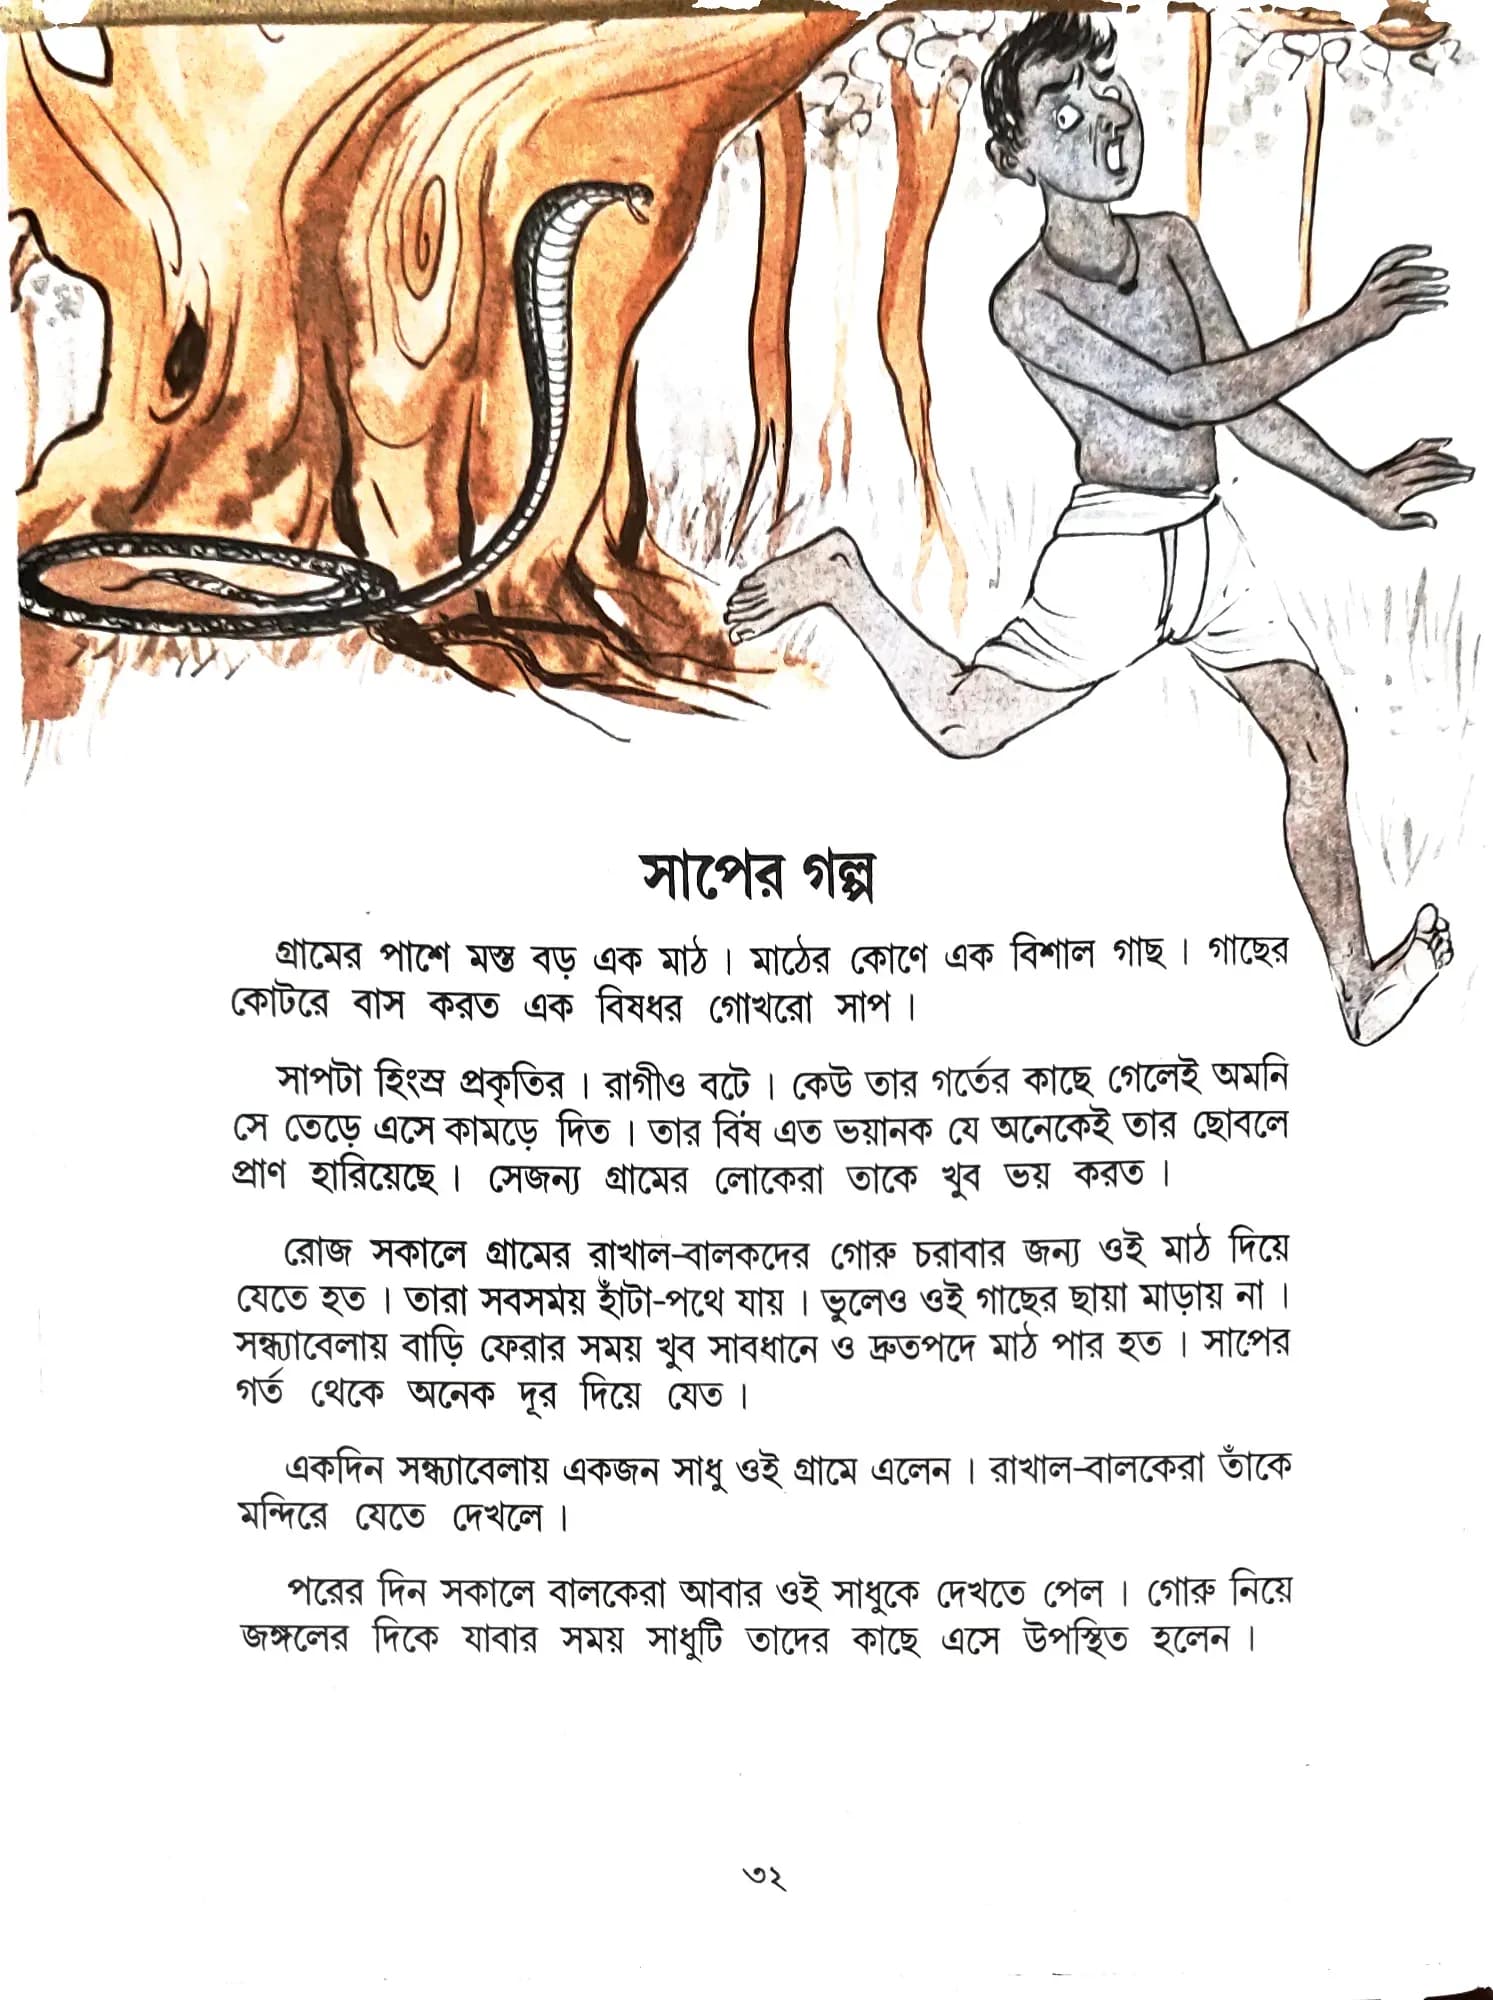 সাপের গল্প
গ্রামের পাশে মস্ত বড় এক মাঠ। মাঠের কোণে এক বিশাল গাছ। গাছের
কোটরে বাস করত এক বিষধর গোখরো সাপ।
সাপটা হিংস্র প্রকৃতির। রাগীও বটে। কেউ তার গর্তের কাছে গেলেই অমনি
সে তেড়ে এসে কামড়ে দিত। তার বিষ এত ভয়ানক যে অনেকেই তার ছোবলে
প্রাণ হারিয়েছে। সেজন্য গ্রামের লোকেরা তাকে খুব ভয় করত।
রোজ সকালে গ্রামের রাখাল-বালকদের গোরু চরাবার জন্য ওই মাঠ দিয়ে
যেতে হত। তারা সবসময় হাঁটা-পথে যায়। ভুলেও ওই গাছের ছায়া মাড়ায় না।
সন্ধ্যাবেলায় বাড়ি ফেরার সময় খুব সাবধানে ও দ্রুতপদে মাঠ পার হত। সাপের
গর্ত থেকে অনেক দূর দিয়ে যেত।
একদিন সন্ধ্যাবেলায় একজন সাধু ওই গ্রামে এলেন। রাখাল-বালকেরা তাঁকে
মন্দিরে যেতে দেখলে।
পরের দিন সকালে বালকেরা আবার ওই সাধুকে দেখতে পেল। গোরু নিয়ে
জঙ্গলের দিকে যাবার সময় সাধুটি তাদের কাছে এসে উপস্থিত হলেন।
৩২